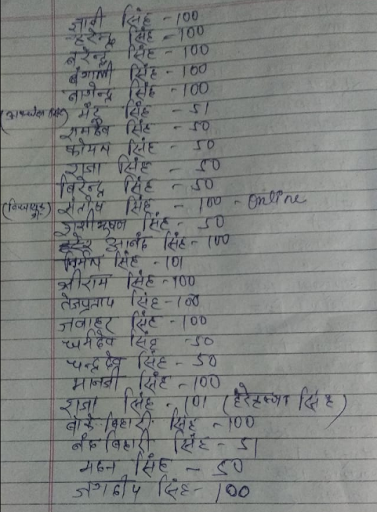 ज्ञानी सिंह - 100
हरेन्द्र सिंह - 100
नरेन्द्र सिंह - 100
बंगाली सिंह - 100
नागेन्द्र सिंह - 100
सिंह - 51
रामदेव सिंह - 50
कोमल सिंह - 50
राजा सिंह - 50
बिरेन्द्र सिंह - 50
संतोष सिंह - 100 - Online
शशीभूषण सिंह - 50
आनंद सिंह - 100
सिंह - 101
श्रीराम सिंह - 100
तेजप्रताप सिंह - 100
जवाहर सिंह - 100
धर्मदेव सिंह - 50
चन्द्रदेव सिंह - 50
मानकी सिंह - 100
राजा सिंह - 101 ( सिंह)
बांके बिहारी सिंह - 100
नंद बिहारी सिंह - 51
मदन सिंह - 50
जगदीप सिंह - 100